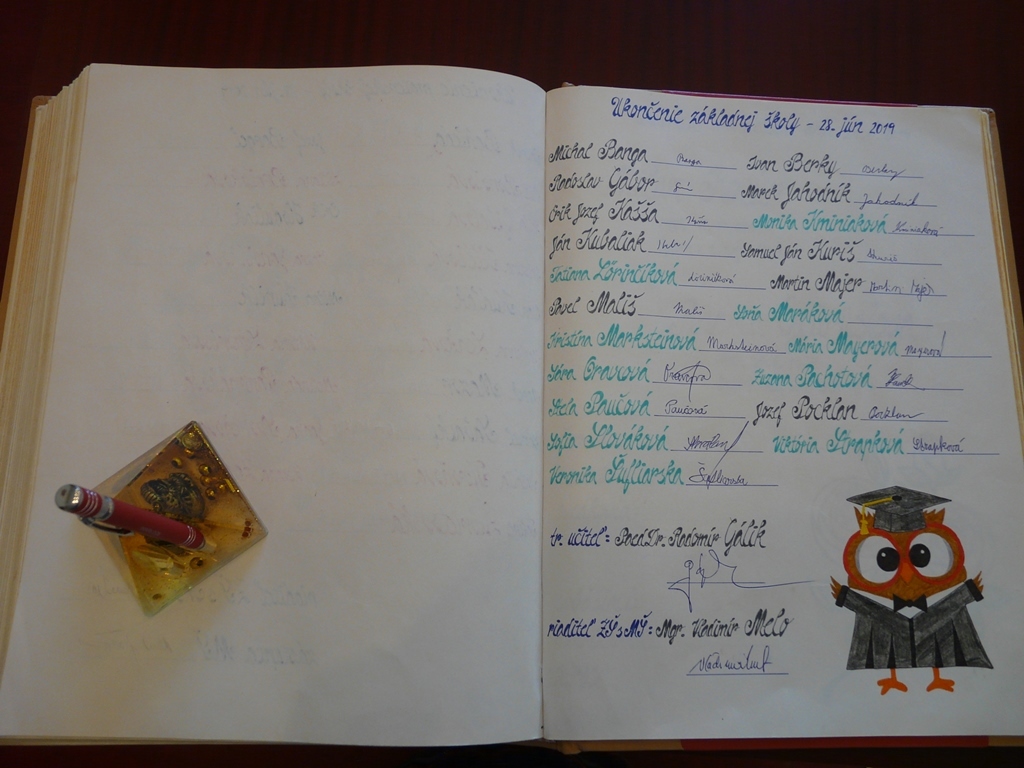 Ukončenie základnej školy - 28. jún 2019
Michal Banga Banga Ivan Berky Berky
Radoslav Gábor Marek Jahodník Jahodnik
Erik Jozef Kášša Monika Kminiaková Kminiaková
Ján Kubaliak Samuel Ján Kuriš Kuriš
Tatiana Lőrinčíková Lőrinčíková Martin Majer Martin Majer
Pavel Mališ Mališ Soňa Maráková
Kristína Marksteinová Marksteinová Mária Mayerová Mayerová
Sára Oravcová Zuzana Pachotová
Stela Paučová Paučová Jozef Pocklan Pocklan
Sofia Slováková Viktória Strapková Strapková
Veronika Šufliarska
tr. učiteľ: PaedDr. Radomír Gálik
riaditeľ ZŠ s MŠ: Mgr. Vladimír Melo